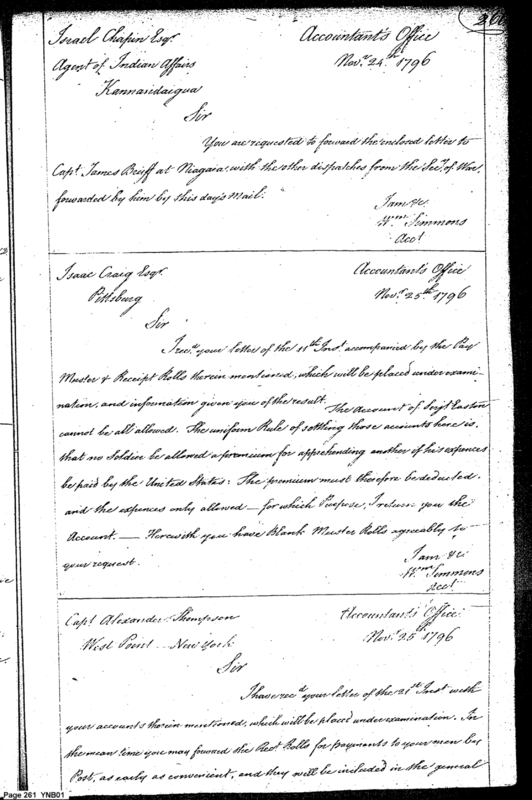 Israel Chapin Esqr. Accountant's Office
Agent of Indian Affairs Novr. 24th 1796
Kannandaigua
Sir
You are requested to forward the enclosed letter to
Capt. James Bruff at Niagara, with the other dispatches from the Secy. of War,
forwarded by him by this day's Mail.
I am &c.
Wm. Simmons
Acct.
Isaac Craig Esqr. Accountant's Office
Pittsburg Novr. 25th 1796
Sir
I recd. your letter of the 11th Inst. accompanied by the Pay
Muster & Receipt Rolls therein mentioned, which will be placed under exami-
nation, and information given you of the result. The Account of Serjt. Easton
cannot be all allowed. The uniform Rule of settling those accounts here is,
that no Soldier be allowed a premium for apprehending another if his expences
be paid by the United States: The premium must therefore be deducted,
and the expences only allowed — for which Purpose, I return you the
Account. — Herewith you have Blank Muster Rolls agreably to
your request.
I am &c
Wm. Simmons
Acct.
Capt. Alexander Thompson Accountant's Office
West Point New York Novr. 25th 1796
Sir
I have recd. your letter of the 21st Inst. with
your accounts therein mentioned, which will be placed under examination. In
the mean time you may forward the Rect. Rolls for payments to your men by
Post, as early as convenient, and they will be included in the general
Page 261 YNB01